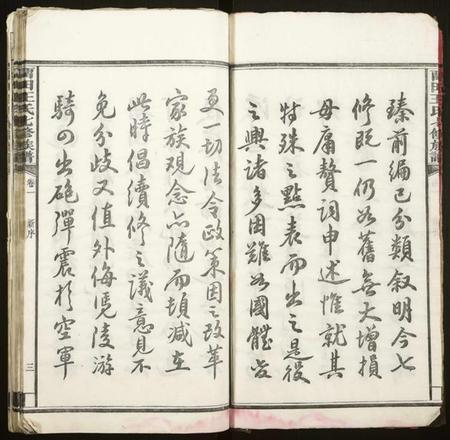 田王氏七修族譜
臻前編已分類叙明今七
修既一仍如舊無大增損
毋庸贅詞申述惟就其
特殊之點表而出之是役
之興諸多困難如國體變
更一切法令政策因之改革
家族观念亦隨而頓減在
此時倡續修之議意見不
免分歧又值外侮馮陵游
騎四出砲彈震於空軍
田王氏七修族譜
卷一
新序
三